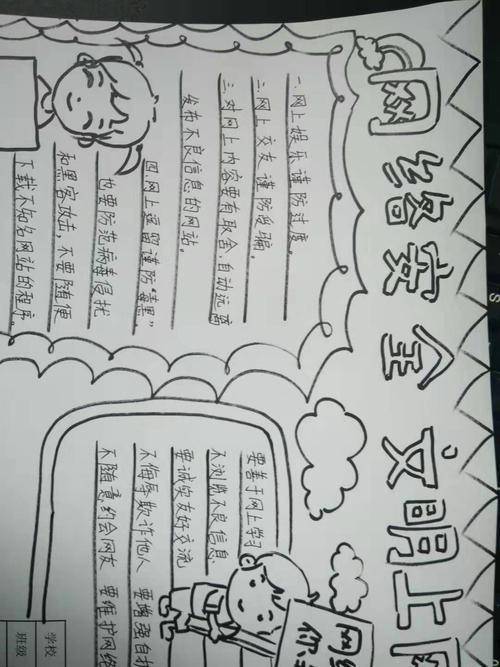 网络安全 文明上
一.网上娱乐谨防过度。
二.网上交友谨防受骗。
三.对网上内容要有取舍,自动远离
发布不良信息的网站。
四.网上逗留谨防“毒黑”
也要防范病毒侵扰
和黑客攻击,不要随便
下载不知名网站的程序。
要善于网上学习
不浏览不良信息
要诚实友好交流
不侮辱欺诈他人 要增强自护
不随意约会网友 要维护网络
学校
班级